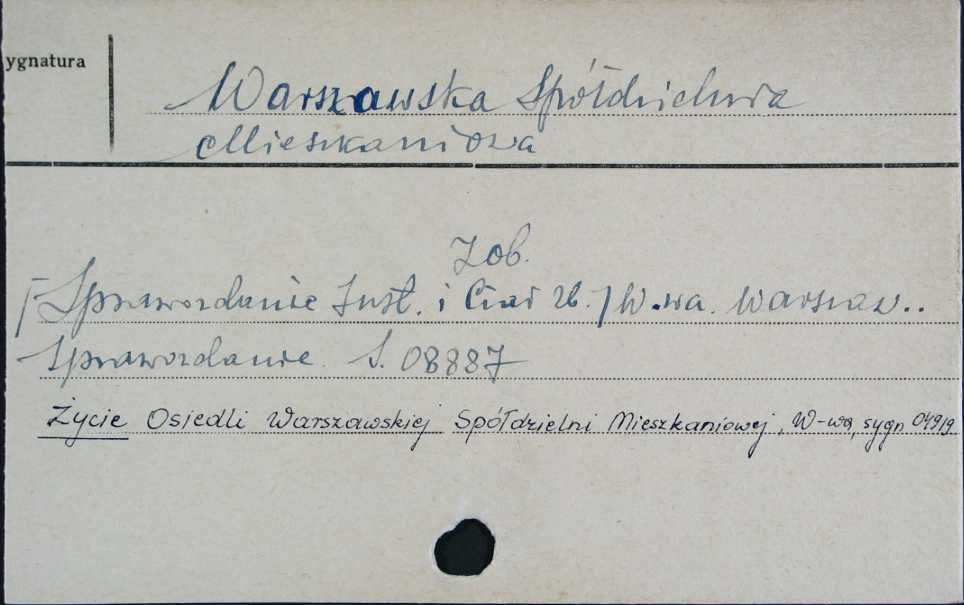 ygnatura
Warszawska Spółdzielnia
Mieszkaniowa
Zob.
[Sprawozdanie Inst. i Ciał Zb.] W-wa. Warszaw..
Sprawozdanie. S. 08887
Życie Osiedli Warszawskiej Spółdzielni Mieszkaniowej, W-wa, sygn 04919